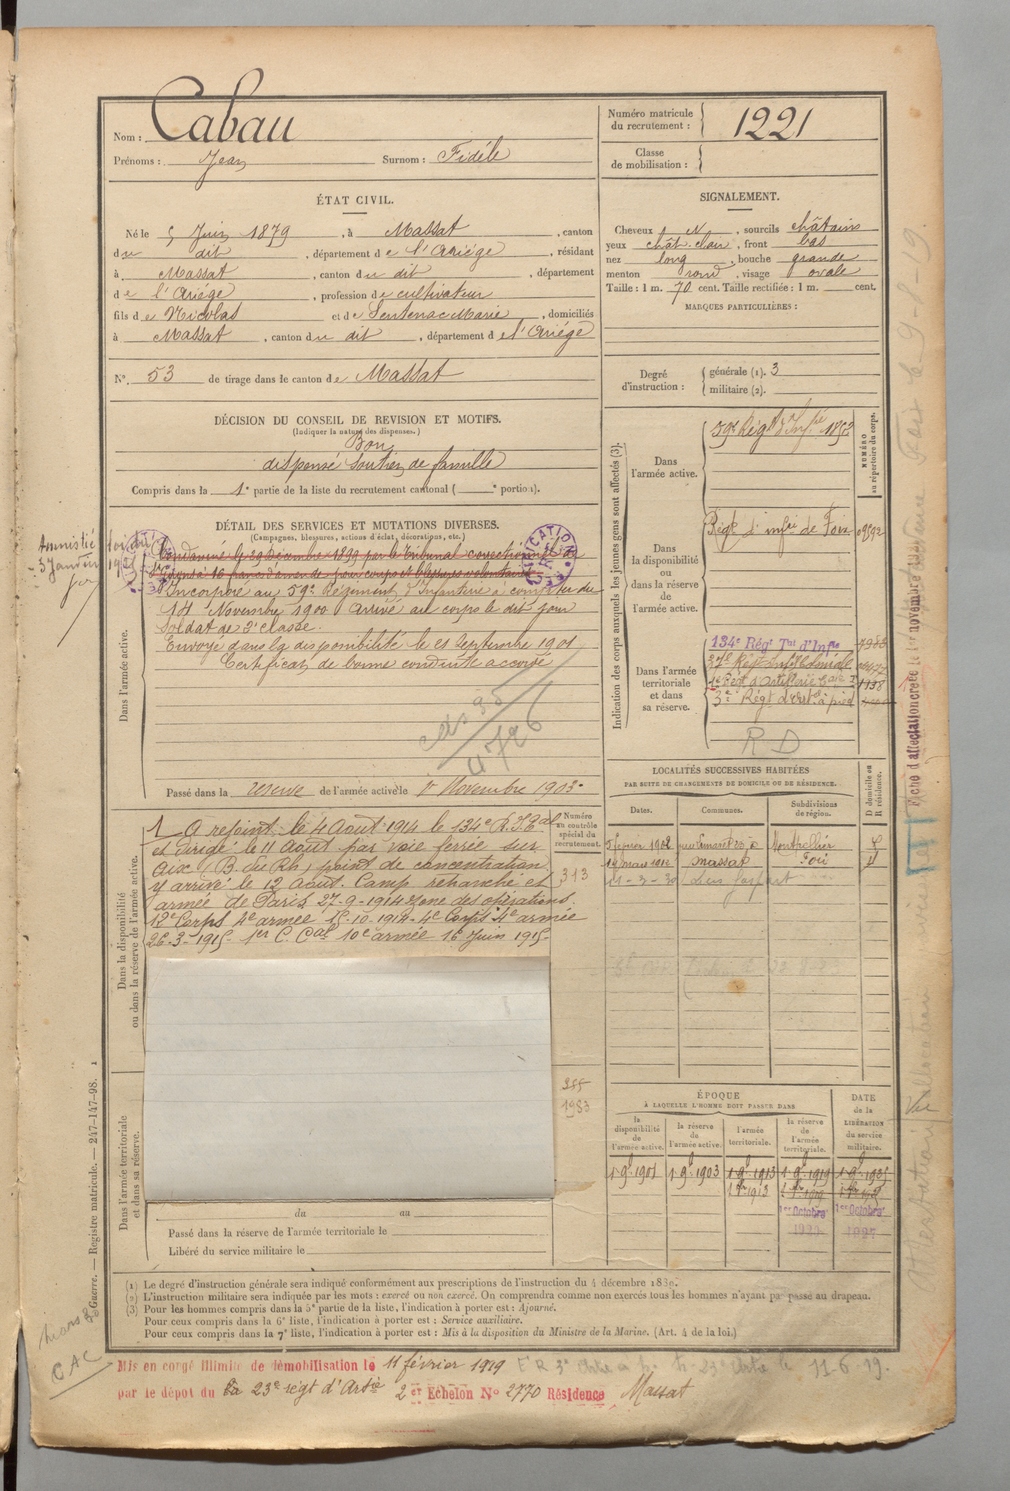 Nom : Cabau
Prénoms : Jean Surnom : Fidéle
Numéro matricule du recrutement : 1221
Classe de mobilisation :
ÉTAT CIVIL.
Né le 5 Juin 1879, à Massat, canton
du dit, département de l'Ariége, résidant
à Massat, canton du dit, département
de l'Ariége, profession de cultivateur
fils de Nicolas et de Sentenac Marie, domiciliés
à Massat, canton du dit, département de l'Ariége
N°. 53 de tirage dans le canton de Massat
SIGNALEMENT.
Cheveux N, sourcils châtains
yeux chât. clair, front bas
nez long, bouche grande
menton rond, visage ovale
Taille : 1 m. 70 cent. Taille rectifiée : 1 m. cent.
MARQUES PARTICULIÈRES :
Degré d'instruction : générale (1). 3
militaire (2).
DÉCISION DU CONSEIL DE REVISION ET MOTIFS.
(Indiquer la nature des dispenses.)
Bon
dispensé soutien de famille
Compris dans la 1e partie de la liste du recrutement cantonal ( e portion).
DÉTAIL DES SERVICES ET MUTATIONS DIVERSES.
(Campagnes, blessures, actions d'éclat, décorations, etc.)
Amnistié loi du
3 Janvier
Condamné le 29 Décembre 1899 par le tribunal correctionnel de
à 16 francs d'amende pour coups et blessures volontaires
Incorporé au 59e Régiment d'Infanterie à compter du
14 Novembre 1900 Arrivé au corps le dit jour
Soldat de 2e classe.
Envoyé dans la disponibilité le 21 Septembre 1901
Certificat de bonne conduite accordé
Dans l'armée active.
Passé dans la réserve de l'armée active le 1er Novembre 1903.
Indication des corps auxquels les jeunes gens sont affectés (3).
NUMÉRO au répertoire du corps.
Dans l'armée active.
59e Régt d'Infrie 1852
Dans la disponibilité ou dans la réserve de l'armée active.
Régt d'infrie de Foix 09592
Dans l'armée territoriale et dans sa réserve.
134e Régt Tal d'Infie 7983
37e Régt Infie Colonial
1er Régt d'Artillerie Cale 1138
3e Régt d'art. à pied
R D
LOCALITÉS SUCCESSIVES HABITÉES
PAR SUITE DE CHANGEMENTS DE DOMICILE OU DE RÉSIDENCE.
Dates. Communes. Subdivisions de région. D domicile ou R résidence.
5 février 1912 Montpellier
14 mars 1912 Massat Foix
Dans la disponibilité ou dans la réserve de l'armée active.
Numéro au contrôle spécial du recrutement.
313
A rejoint le 4 Août 1914 le 134e R.I.Tal
et dirigé le 11 Août par voie ferrée sur
Aix (B. du Rh.) point de concentration
y arrivé le 12 Août. Camp retranché et
armée de Paris 27-9-1914 Zone des opérations
12e Corps 4e armée 15-10-1914-4e Corps 4e armée
26-3-1915- 1er C. Cal 10e armée 16 Juin 1915-
1983
Dans l'armée territoriale et dans sa réserve.
du au
Passé dans la réserve de l'armée territoriale le
Libéré du service militaire le
ÉPOQUE
À LAQUELLE L'HOMME DOIT PASSER DANS
la disponibilité de l'armée active. la réserve de l'armée active. l'armée territoriale. la réserve de l'armée territoriale. DATE de la LIBÉRATION du service militaire.
1.9.1901 1.9.1903 1.9.1913 1.9.1919 1.9.1925
1er Octobre 1er Octobre
Fiche d'affectation créée le 1er novembre
Guerre. — Registre matricule. — 247-147-98. 1
(1) Le degré d'instruction générale sera indiqué conformément aux prescriptions de l'instruction du 4 décembre 1889.
(2) L'instruction militaire sera indiquée par les mots : exercé ou non exercé. On comprendra comme non exercés tous les hommes n'ayant pas passé au drapeau.
(3) Pour les hommes compris dans la 5e partie de la liste, l'indication à porter est : Ajourné.
Pour ceux compris dans la 6e liste, l'indication à porter est : Service auxiliaire.
Pour ceux compris dans la 7e liste, l'indication à porter est : Mis à la disposition du Ministre de la Marine. (Art. 4 de la loi.)
CAC
Mis en congé illimité de démobilisation le 11 février 1919
par le dépôt du 23e régt d'Artie 2er Echelon N° 2770 Résidence Massat